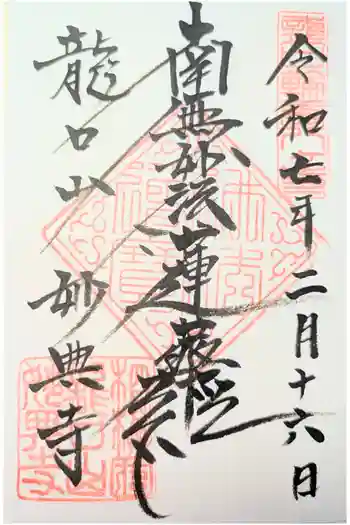 令和七年二月十六日
南無妙法蓮華経
龍口山妙典寺